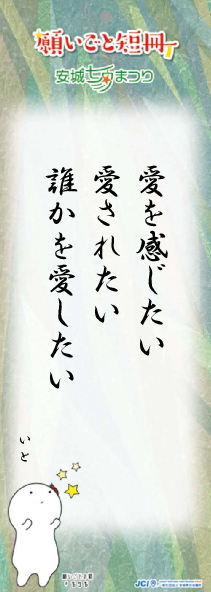 願いごと短冊
安城七夕まつり
愛を感じたい
愛されたい
誰かを愛したい
いと
JCI